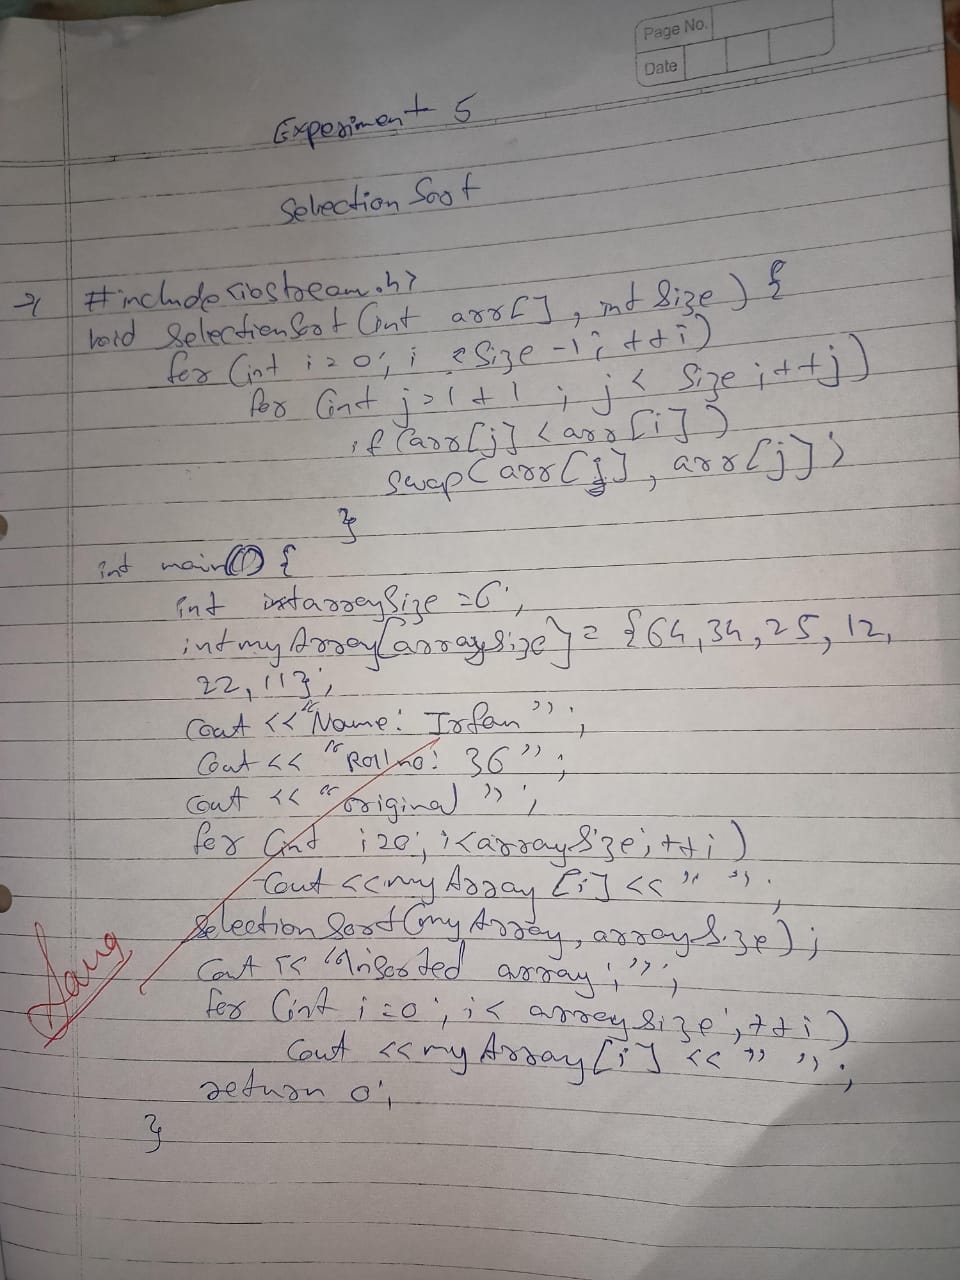 Page No.
Date
Experiment 5
Selection Sort
#include<iostream.h>
void SelectionSort (int arr[], int Size) {
for (int i=0; i < Size -1; ++i)
for (int j=1+1 ; j < Size ; ++j)
if (arr[j] < arr[i])
swap(arr[j], arr[j])
}
int main() {
int arraySize =6;
int myArray[arraySize] = {64,34,25,12,
22,11};
Cout << "Name: Irfan";
Cout << "Roll no: 36";
cout << "original";
for (int i=0; i<arraySize; ++i)
Cout <<myArray [i] << " ";
Selection Sort(myArray, arraySize);
Cout << "Inserted array;";
for (int i=0; i< arraySize; ++i)
Cout <<myArray[i] << " ";
return 0;
}